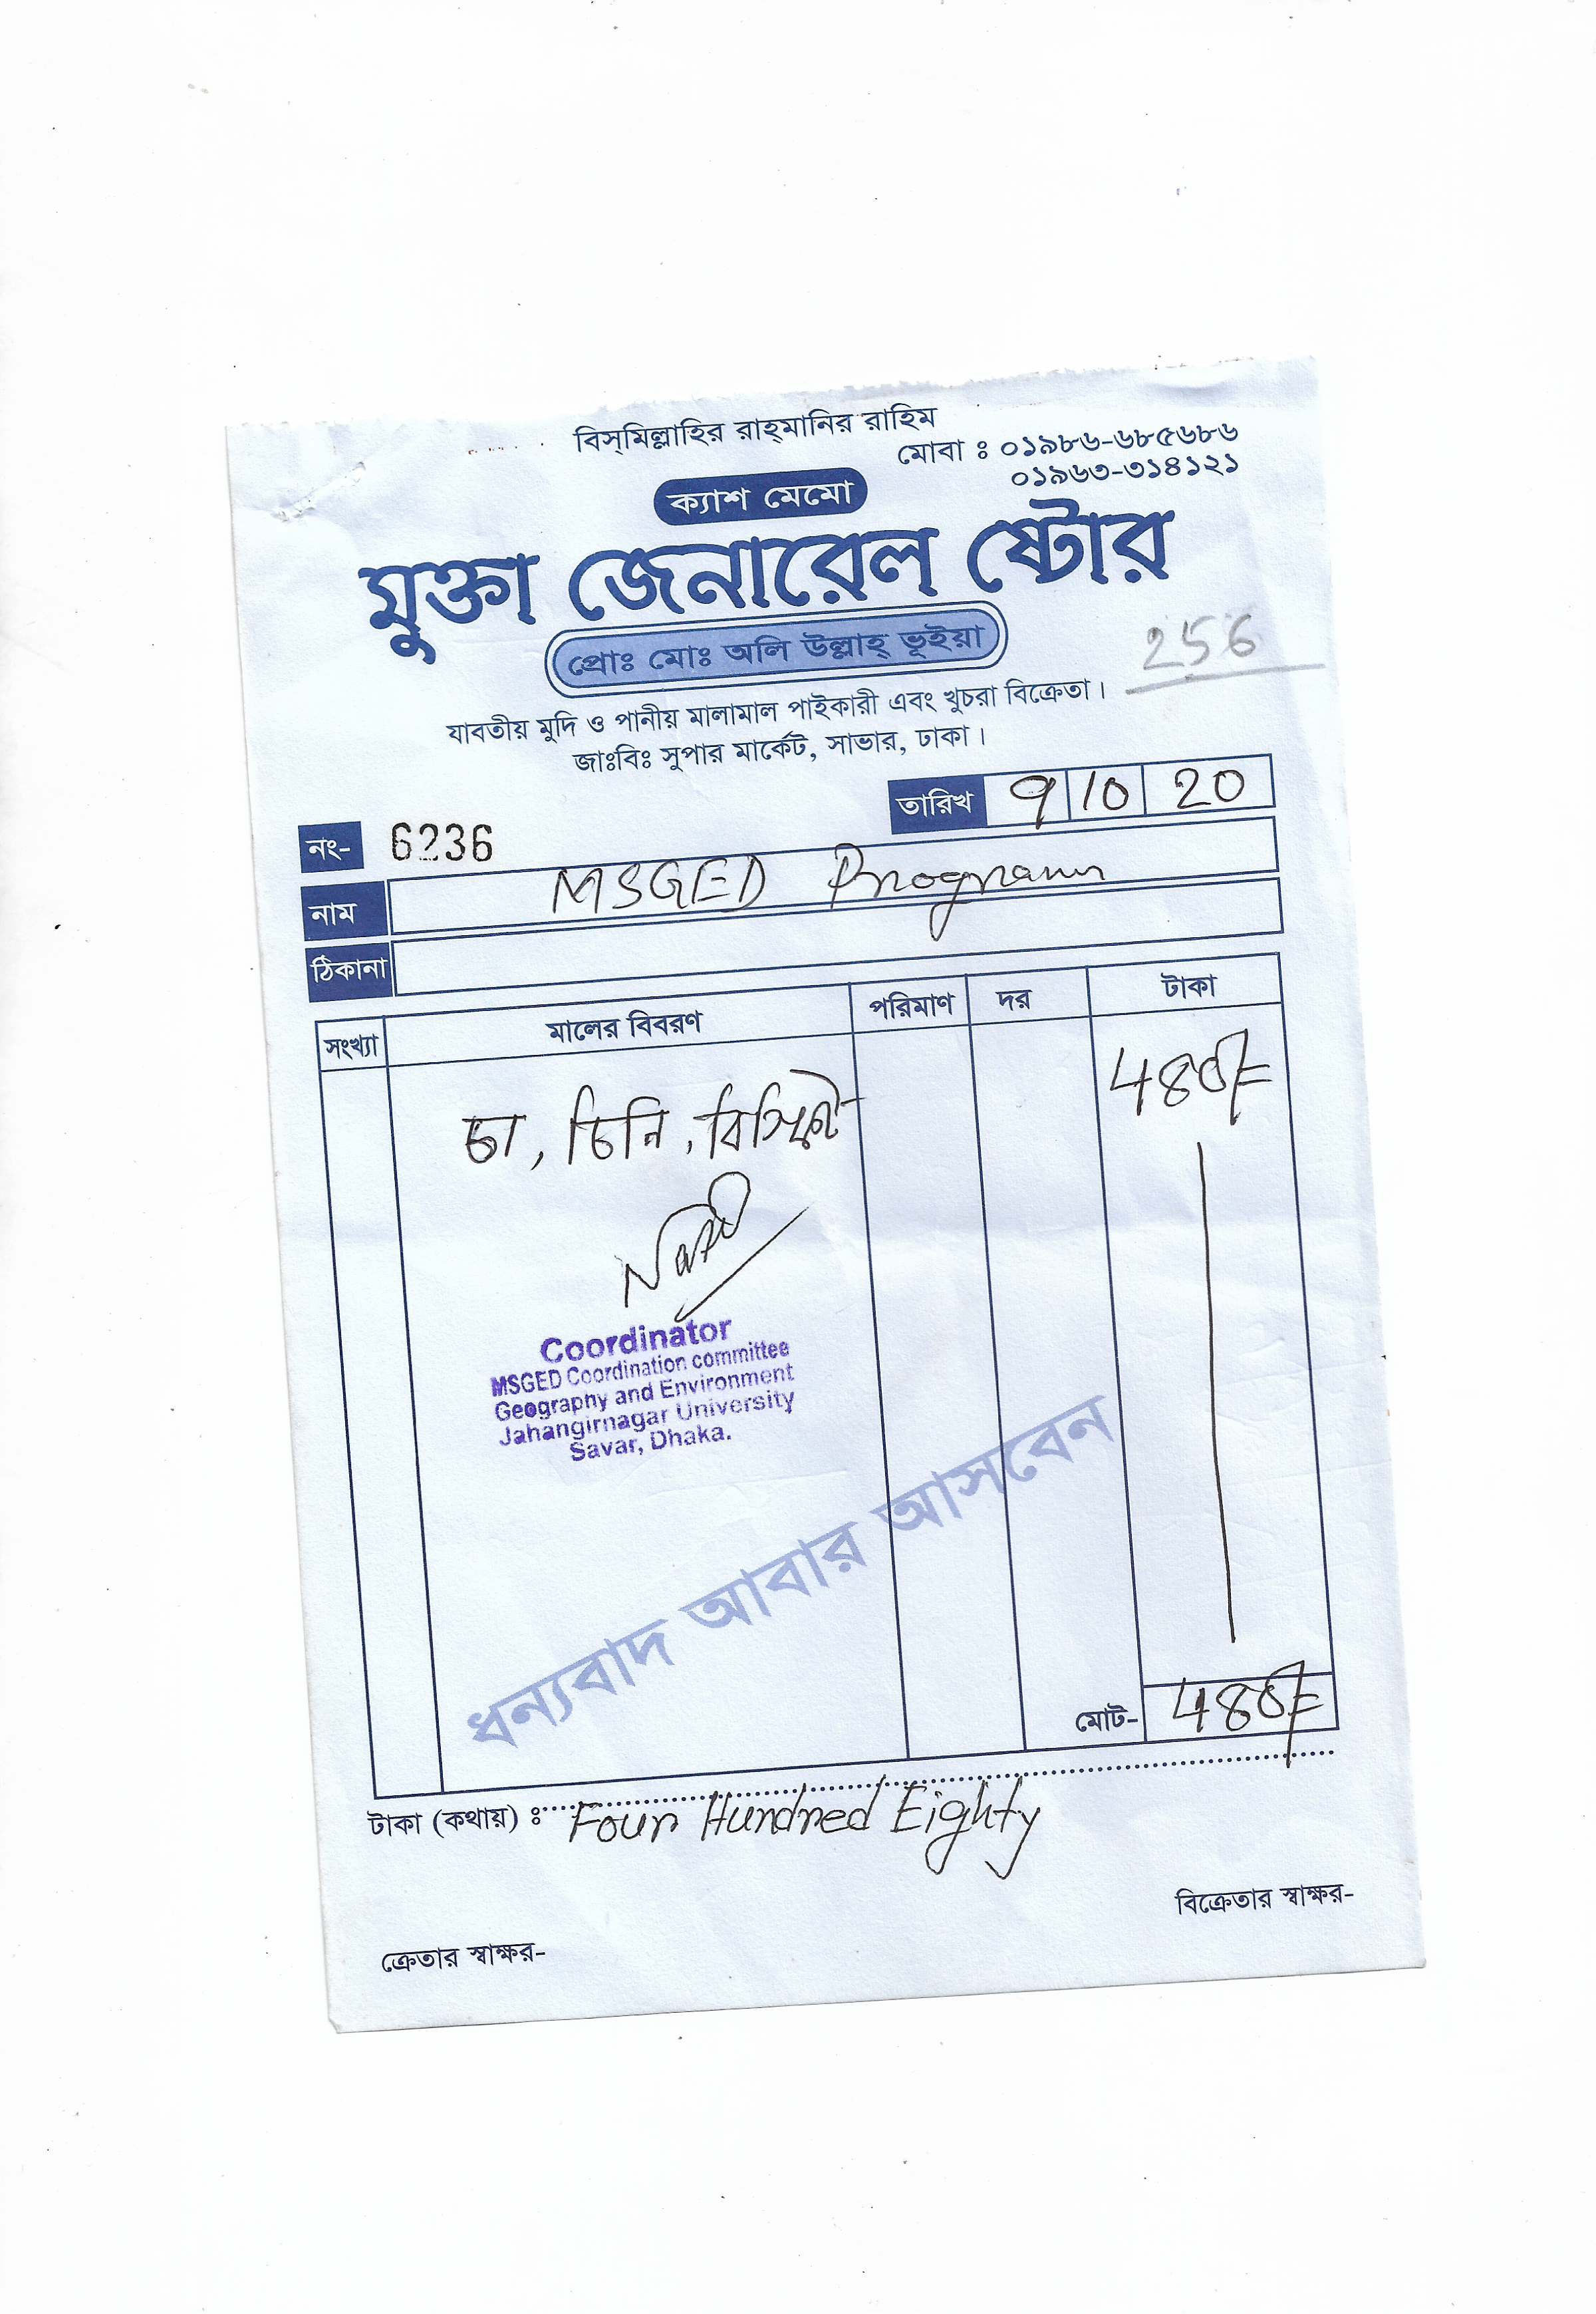 বিস্‌মিল্লাহির রাহ্‌মানির রাহিম
মোবা ঃ ০১৯৮৬-৬৮৫৬৮৬
০১৯৬৩-৩১৪১২১
ক্যাশ মেমো
মুক্তা জেনারেল ষ্টোর
প্রোঃ মোঃ অলি উল্লাহ্ ভূইয়া
256
যাবতীয় মুদি ও পানীয় মালামাল পাইকারী এবং খুচরা বিক্রেতা।
জাঃবিঃ সুপার মার্কেট, সাভার, ঢাকা।
তারিখ 9 10 20
নং- 6236
নাম MSGED Program
ঠিকানা
সংখ্যা মালের বিবরণ পরিমাণ দর টাকা
চা, চিনি, বিস্কিট 480/=
Coordinator
MSGED Coordination committee
Geography and Environment
Jahangirnagar University
Savar, Dhaka.
ধন্যবাদ আবার আসবেন
মোট- 480/=
টাকা (কথায়) ঃ Four Hundred Eighty
বিক্রেতার স্বাক্ষর-
ক্রেতার স্বাক্ষর-